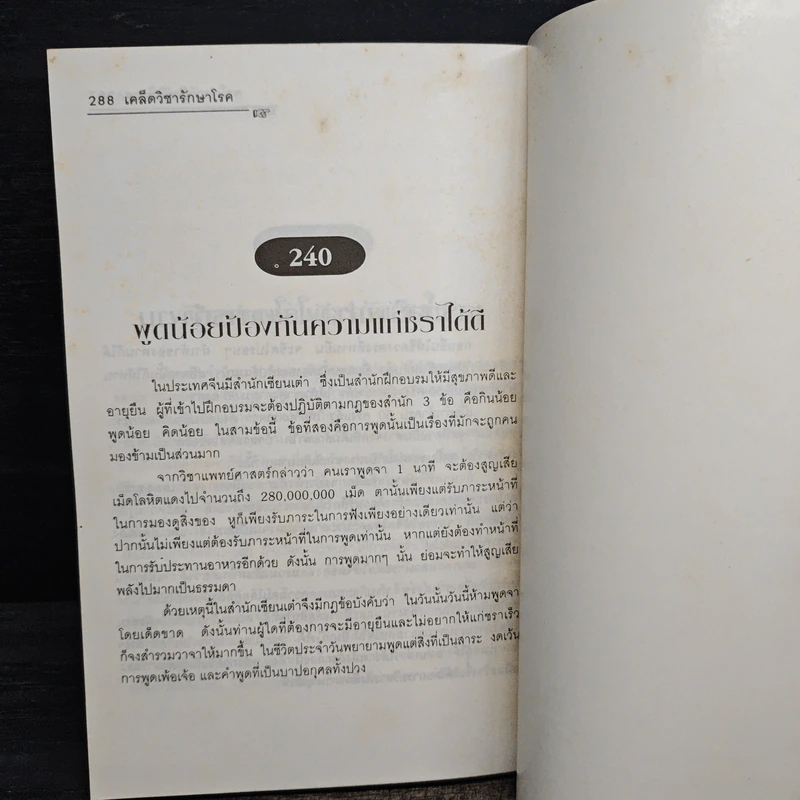 288 เคล็ดวิชารักษาโรค
240
พูดน้อยป้องกันความแก่ชราได้ดี
ในประเทศจีนมีสำนักเซียนเต๋า ซึ่งเป็นสำนักฝึกอบรมให้มีสุขภาพดีและ
อายุยืน ผู้ที่เข้าไปฝึกอบรมจะต้องปฏิบัติตามกฎของสำนัก 3 ข้อ คือกินน้อย
พูดน้อย คิดน้อย ในสามข้อนี้ ข้อที่สองคือการพูดนั้นเป็นเรื่องที่มักจะถูกคน
มองข้ามเป็นส่วนมาก
จากวิชาแพทย์ศาสตร์กล่าวว่า คนเราพูดจา 1 นาที จะต้องสูญเสีย
เม็ดโลหิตแดงไปจำนวนถึง 280,000,000 เม็ด ตานั้นเพียงแต่รับภาระหน้าที่
ในการมองดูสิ่งของ หูก็เพียงรับภาระในการฟังเพียงอย่างเดียวเท่านั้น แต่ว่า
ปากนั้นไม่เพียงแต่ต้องรับภาระหน้าที่ในการพูดเท่านั้น หากแต่ยังต้องทำหน้าที่
ในการรับประทานอาหารอีกด้วย ดังนั้น การพูดมากๆ นั้น ย่อมจะทำให้สูญเสีย
พลังไปมากเป็นธรรมดา
ด้วยเหตุนี้ในสำนักเซียนเต๋าจึงมีกฎข้อบังคับว่า ในวันนั้นวันนี้ห้ามพูดจา
โดยเด็ดขาด ดังนั้นท่านผู้ใดที่ต้องการจะมีอายุยืนและไม่อยากให้แก่ชราเร็ว
ก็จงสำรวมวาจาให้มากขึ้น ในชีวิตประจำวันพยายามพูดแต่สิ่งที่เป็นสาระ งดเว้น
การพูดเพ้อเจ้อ และคำพูดที่เป็นบาปอกุศลทั้งปวง